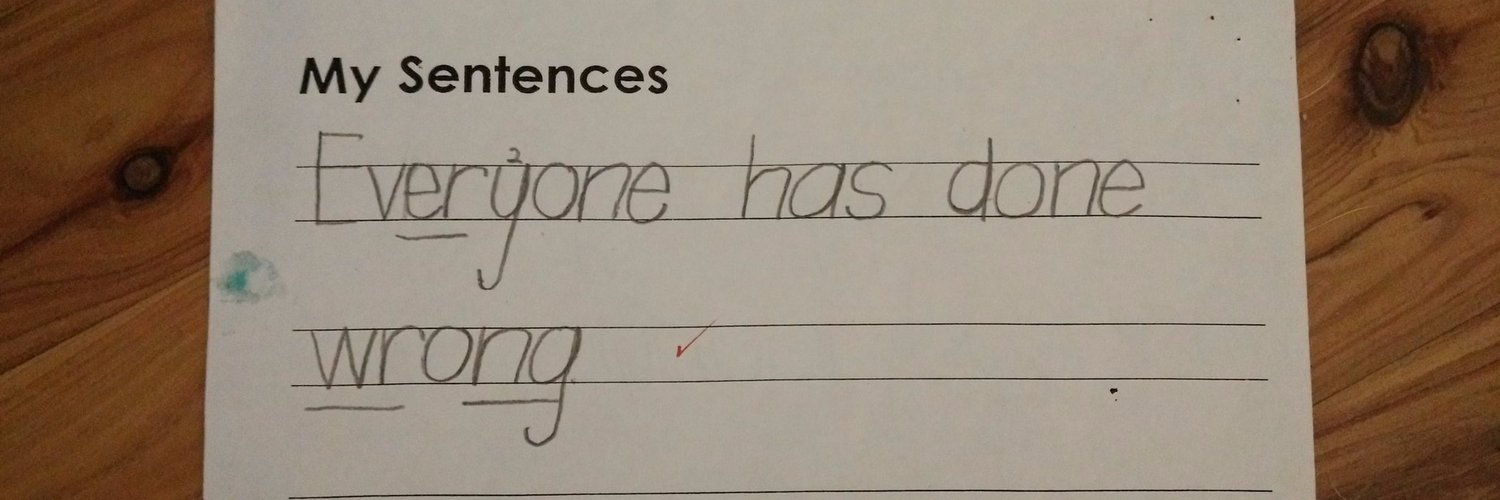 My Sentences
Everyone has done
wrong